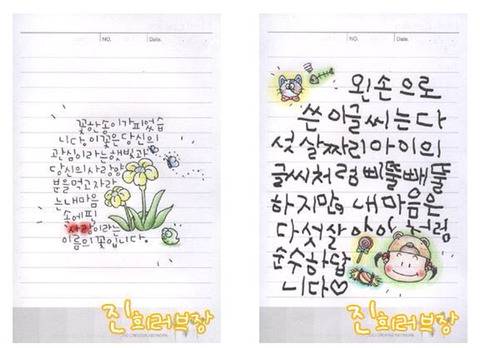 NO.
Date.
꽃한송이가피었습
니다.이꽃은당신의
관심이라는햇빛과
당신의사랑양
분을먹고자라
는내마음
속에핀
사랑이라는
이름의꽃입니다.
진희러브장
NO.
Date.
왼손으로
쓴이글씨는다
섯살짜리아이의
글씨처럼삐뚤빼뚤
하지만, 내마음은
다섯살아이처럼
순수하답
니다♡
진희러브장